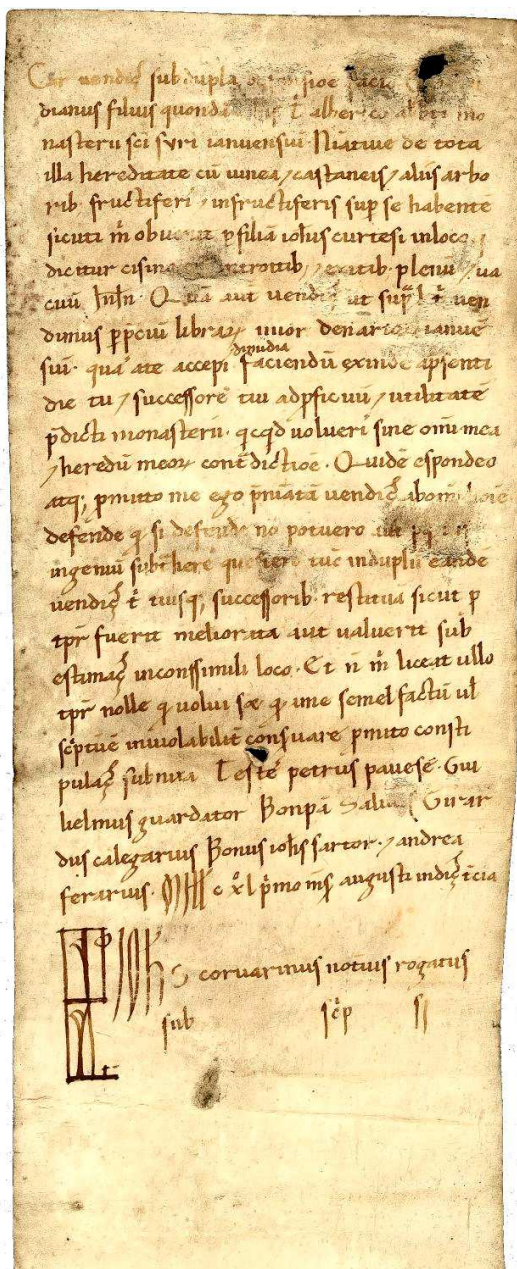 Car vendic sub dupla defensioe facio
dianus filius quonda t alberico abbti mo
nasterii sci syri ianuensui. Niative de tota
illa hereditate cu vinea, castaneis, aliis arbo
rib fructiferi, infructiferis sup se habente
sicuti m obuenit p filia iohis curtesi in loco
dicitur cisina introitib, exitib plenu, va
cuu Inln. Qua aut vendic ut sup l t ven
dimus p pciu librar iiiior denarior ianue
sui. qua a te accepi dimidia faciendu exinde a psenti
die tu, successore tui ad pficuu, utilitate
pdicti monasterii. qcqd volueri sine omi mea
, heredu meor contdictioe. Quide espondeo
atq; pmitto me ego pniata vendic ab omi hoie
defende q si defende no potuero aut
ingeniu subthere quesiero tuc in duplu eande
vendic t tuisq; successorib restitua sicut p
tpr fuerit meliorata aut valuerit sub
estimac in consimili loco. Et n m liceat ullo
tpr nolle q volui sz q a me semel factu ul
scptue inviolabilit conservare pmitto consti
pulac subnixa Teste petrus pavese. Gui
lielmus guardator Bonpa Salui Girar
dus calegarius Bonus iohis sartor, andrea
ferarius. Mill c xl pmo ms augusti indic tcia
Ioh s corvarinus notuis rogatus
sub scp ss